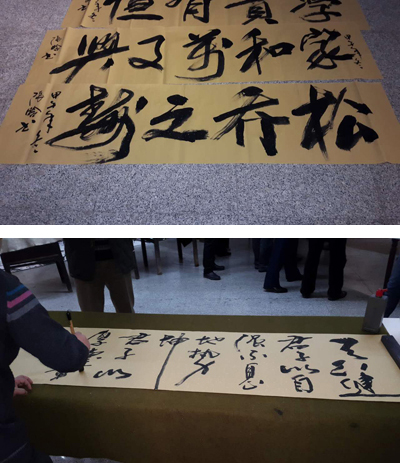 學貴有恒
家和萬事興
松乔之壽
天行健
君子以自
强不息
地势
坤
君子以
厚德